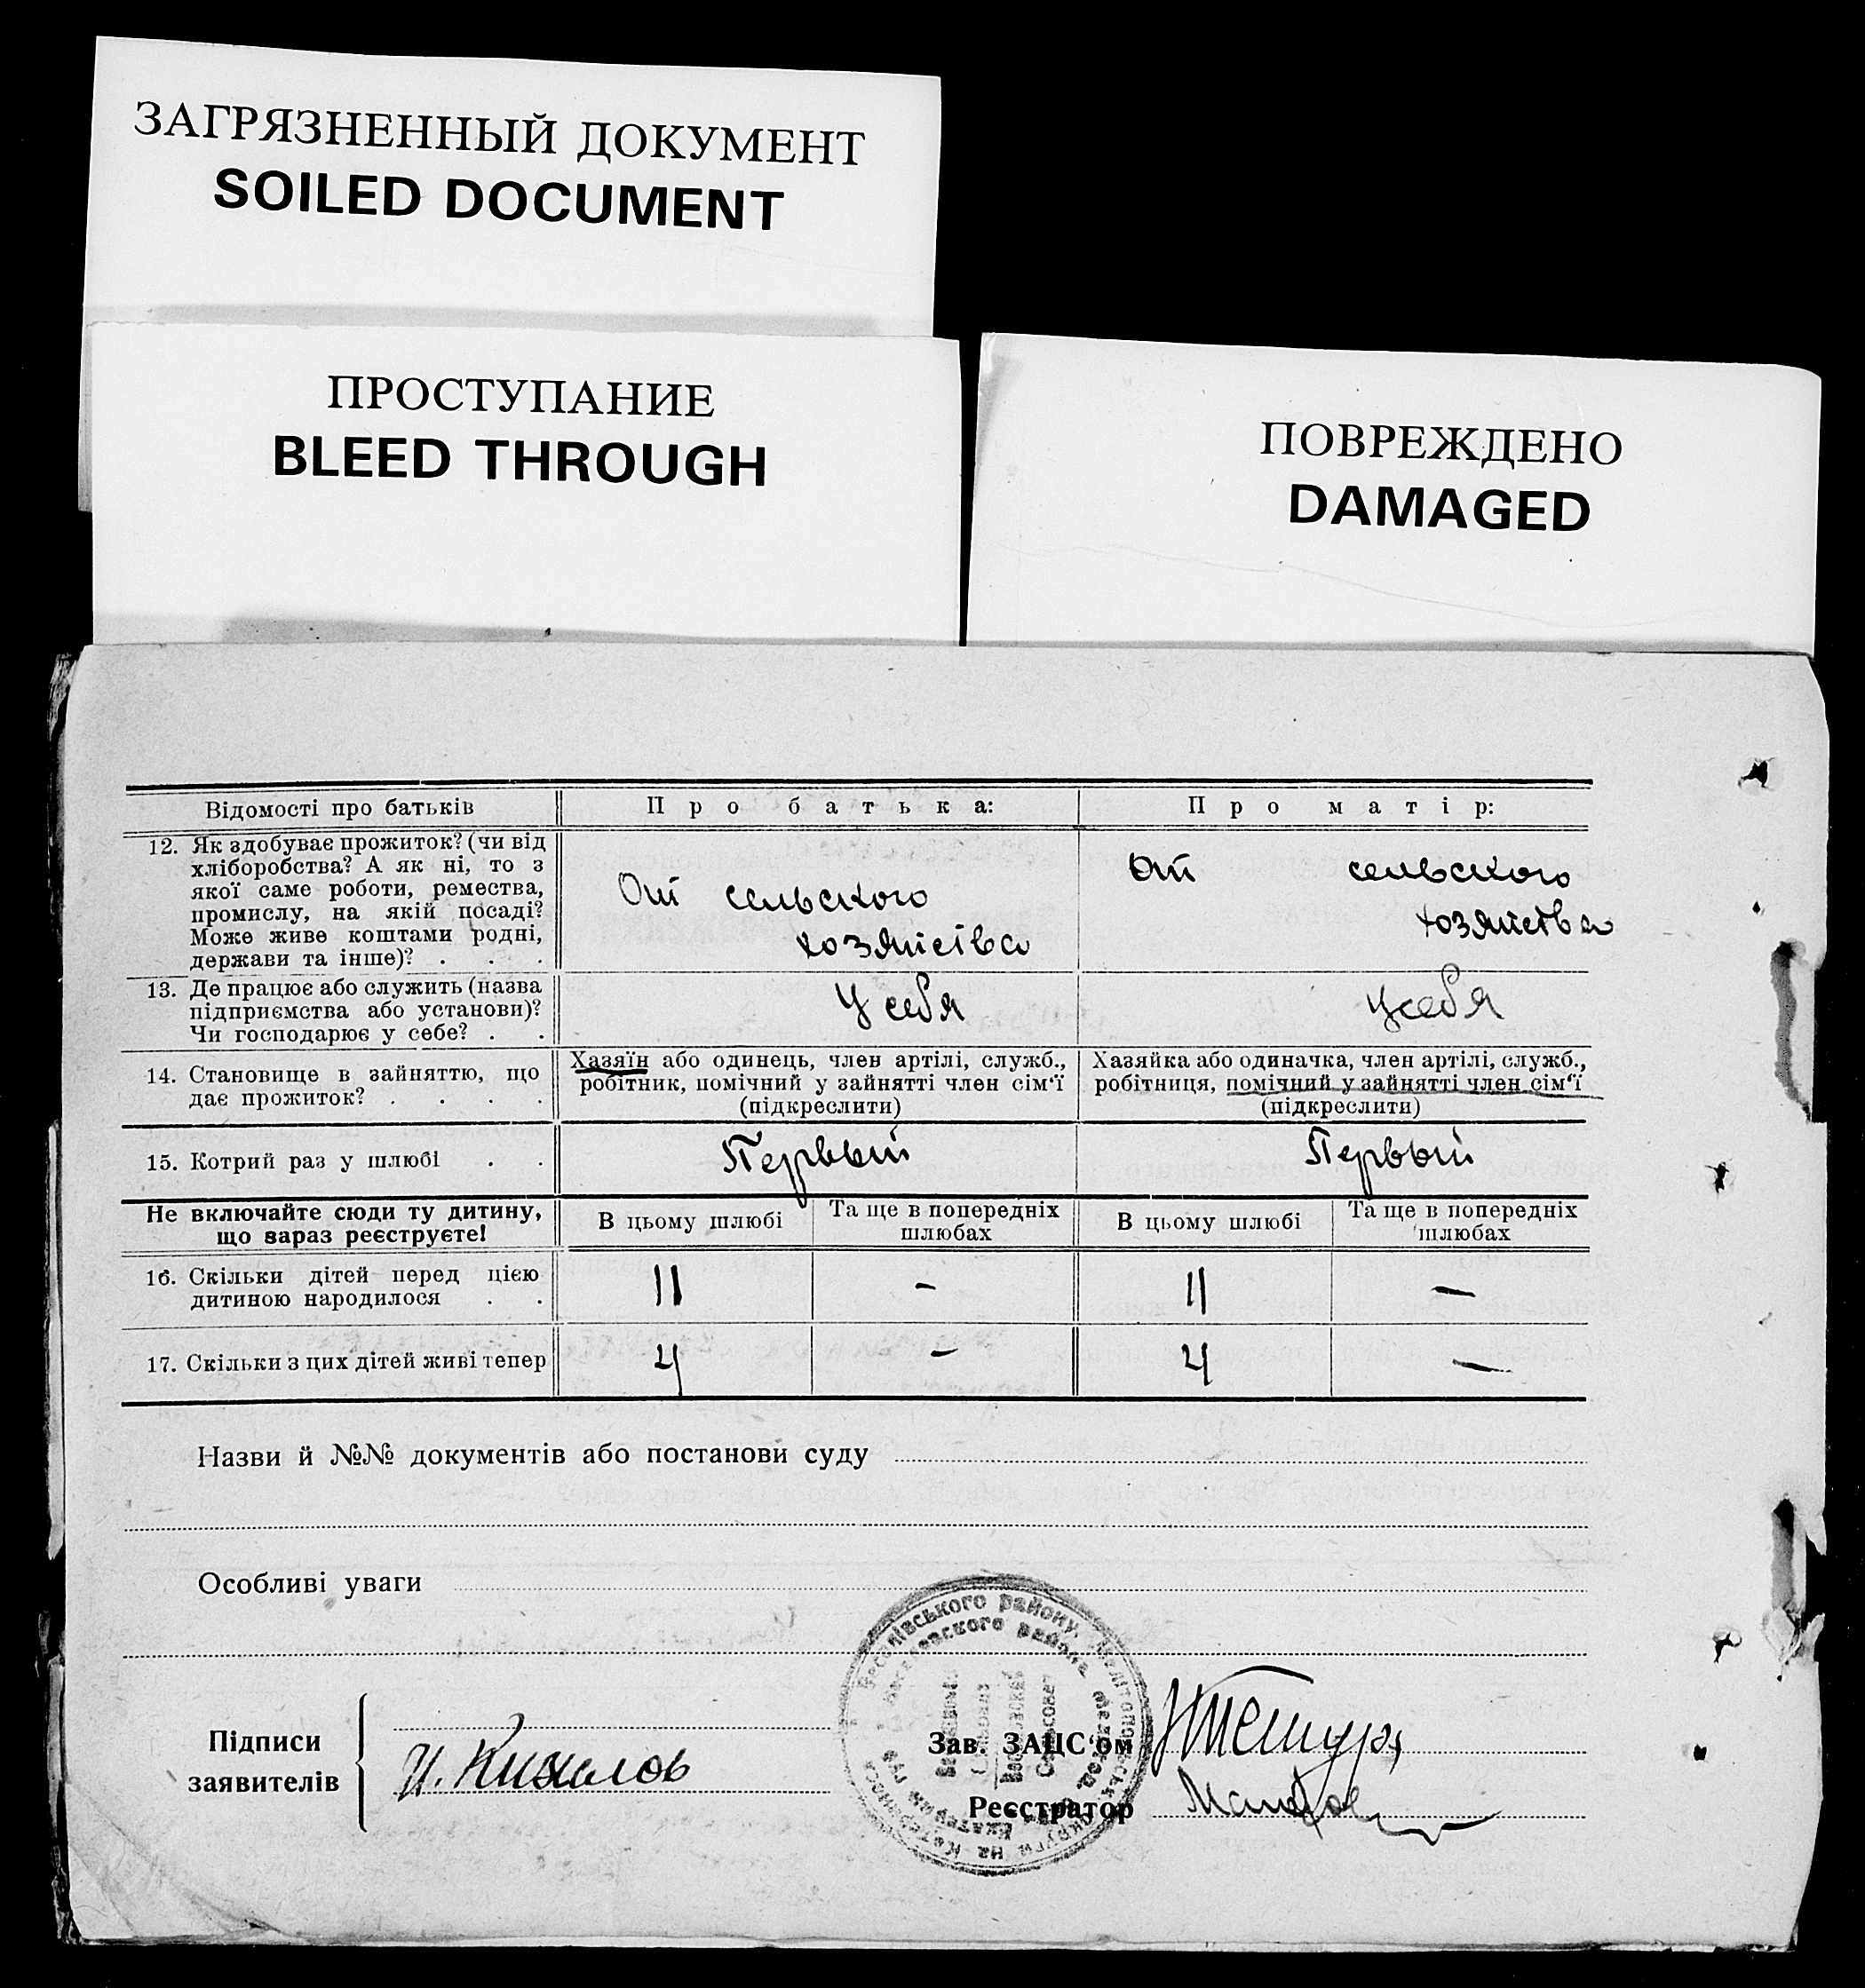 ЗАГРЯЗНЕННЫЙ ДОКУМЕНТ
SOILED DOCUMENT
ПРОСТУПАНИЕ
BLEED THROUGH
ПОВРЕЖДЕНО
DAMAGED
Відомості про батьків
Про батька:
Про матір:
12. Як здобуває прожиток? (чи від
хліборобства? А як ні, то з
якої саме роботи, ремества,
промислу, на якій посаді?
Може живе коштами родні,
держави та інше)? . . .
От сельского
хозяйства
От сельского
хозяйства
13. Де працює або служить (назва
підприємства або установи)?
Чи господарює у себе? . .
У себя
У себя
14. Становище в зайняттю, що
дає прожиток? . . . .
Хазяїн або одинець, член артілі, служб.,
робітник, помічний у зайнятті член сім'ї
(підкреслити)
Хазяйка або одиначка, член артілі, служб.,
робітниця, помічний у зайнятті член сім'ї
(підкреслити)
15. Котрий раз у шлюбі . .
Первый
Первый
Не включайте сюди ту дитину,
що зараз реєструєте!
В цьому шлюбі
Та ще в попередніх
шлюбах
В цьому шлюбі
Та ще в попередніх
шлюбах
16. Скільки дітей перед цією
дитиною народилося . .
11
-
11
-
17. Скільки з цих дітей живі тепер
4
-
4
-
Назви й №№ документів або постанови суду
Особливі уваги
району
района
Сельсовет
Підписи
заявителів
И.
Зав. ЗАЦС'ом
Реєстратор